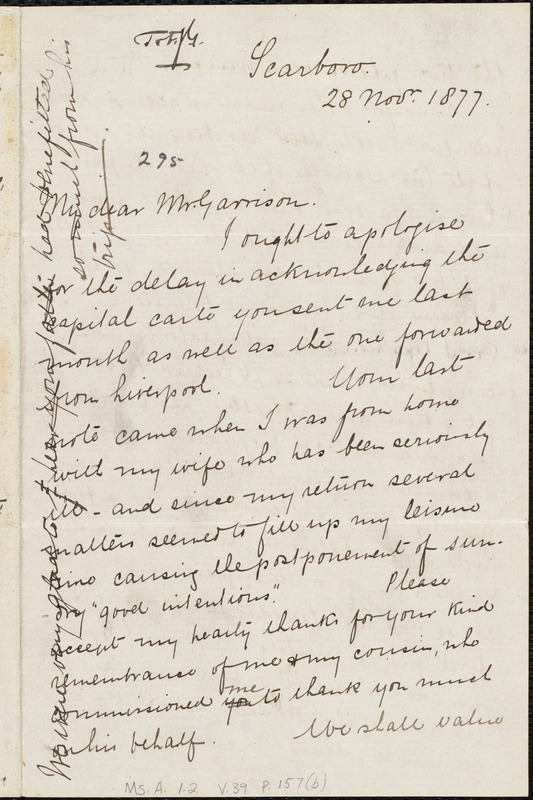 Scarboro.
28 Novr. 1877.
295
My dear Mr. Garrison.
I ought to apologise
for the delay in acknowledging the
capital carte you sent me last
month as well as the one forwarded
from Liverpool. Your last
note came when I was from home
with my wife who has been seriously
ill - and since my return several
matters seemed to fill up my leisure
time causing the postponement of sun-
dry "good intentions". Please
accept my hearty thanks for your kind
remembrance of me & my cousin, who
commissioned you me to thank you much
on his behalf. We shall value
We were very glad to hear your father had benefitted
so much from his
trip.
Ms. A. 1.2 V. 39 P. 157(b)